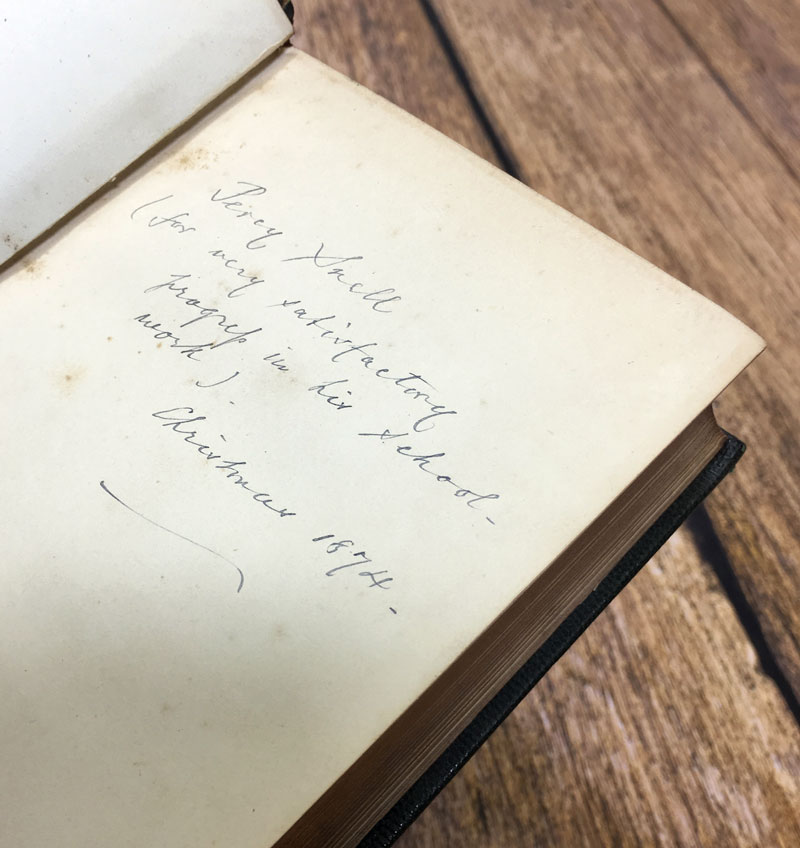 Percy Snell
(for very satisfactory
progress in his school-
work).
Christmas 1874.